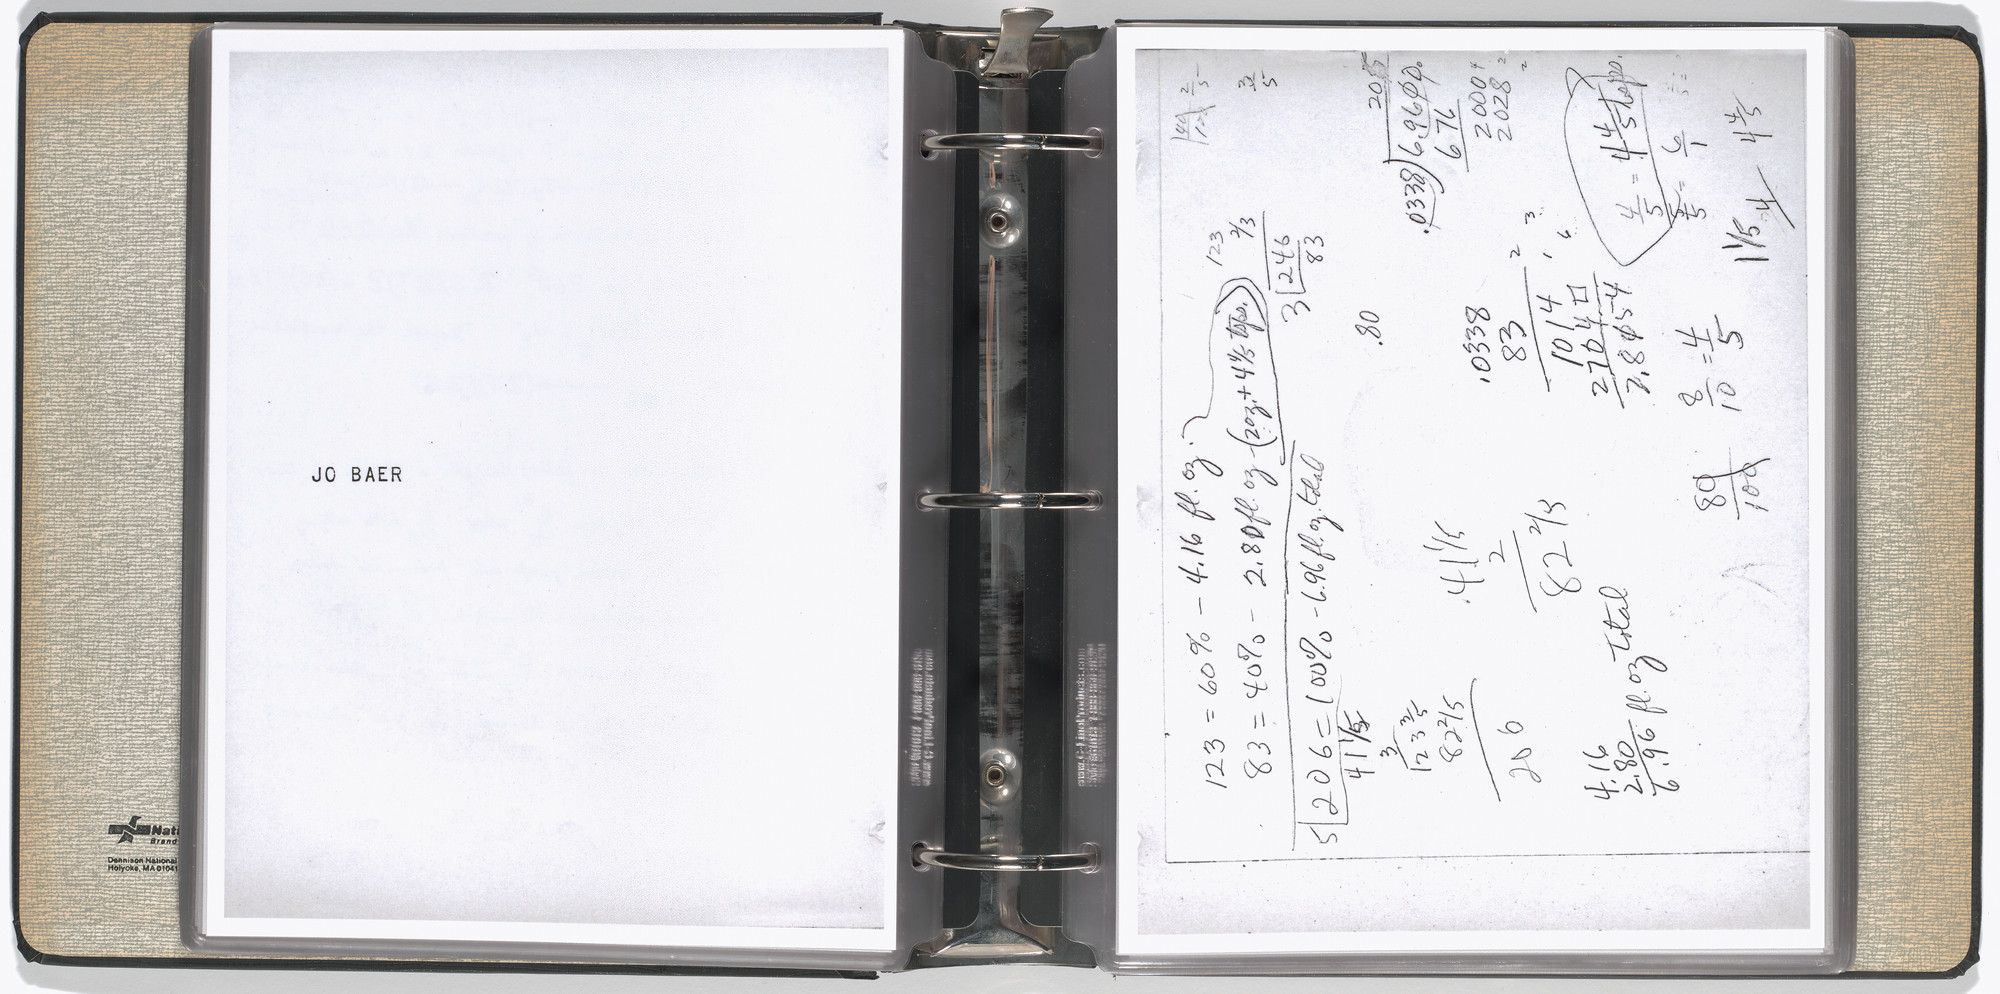 JO BAER
National
Brand
Dennison National
Holyoke, MA 01041
123 = 60% – 4.16 fl. oz.
83 = 40% – 2.80 fl. oz – (2oz. + 4 4/5 tsps.)
5 206 = 100% – 6.96 fl. oz. total
41 1/5
3
123 3/5
82 2/5
206
4.16
2.80
6.96 fl. oz total
41 1/5
2
82 2/5
123
2/3
3 246
83
.80
.0338
83
1014
2704
2.8054
.0338 6.9600
676
2000
2028
4/5 = 4 4/5 tsps.
6/1
8/10 = 4/5
80/100
4 4/5